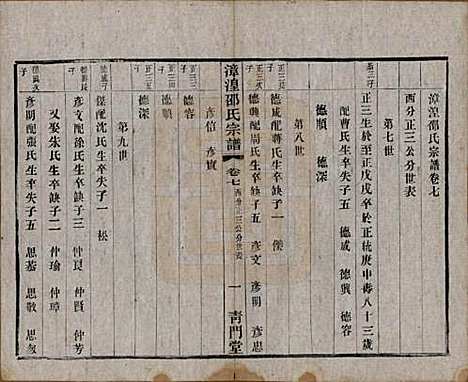 漳湟邵氏宗譜卷七
西分正三公分世表
第七世
孟三子
正三生於至正戊戌卒於正統庚申壽八十三歲
配曹氏生卒缺子五 德咸 德興 德容
德順 德深
第八世
正三長子
德咸配蔣氏生卒缺子一 傑
正三次子
德興配周氏生卒缺子五 彥文 彥明 彥忠
漳湟邵氏宗譜
卷七
西分正三公分世表
一
青門堂
彥信 彥實
德容
德順
德深
第九世
德咸子
傑配沈氏生卒缺子一 松
德興長子
彥文配徐氏生卒缺子三 仲良 仲賢 仲芳
又娶朱氏生卒缺子二 仲瑜 仲璋
德興次子
彥明配張氏生卒失子五 思恭 思敬 思忽